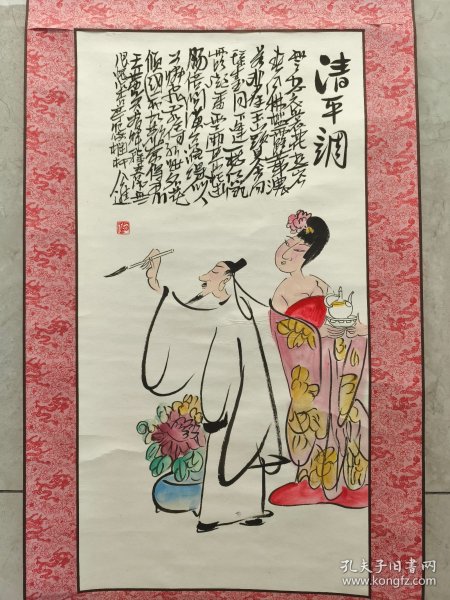 清平调
云想衣裳花想容
春风拂槛露华浓
若非群玉山头见会向
瑶台月下逢一枝红
艳露凝香云雨巫山枉断
肠借问汉宫谁得似
可怜飞燕倚新妆名花
倾国两相欢常得君
王带笑看解释春风无
孔夫子旧书网
www.kongfz.com